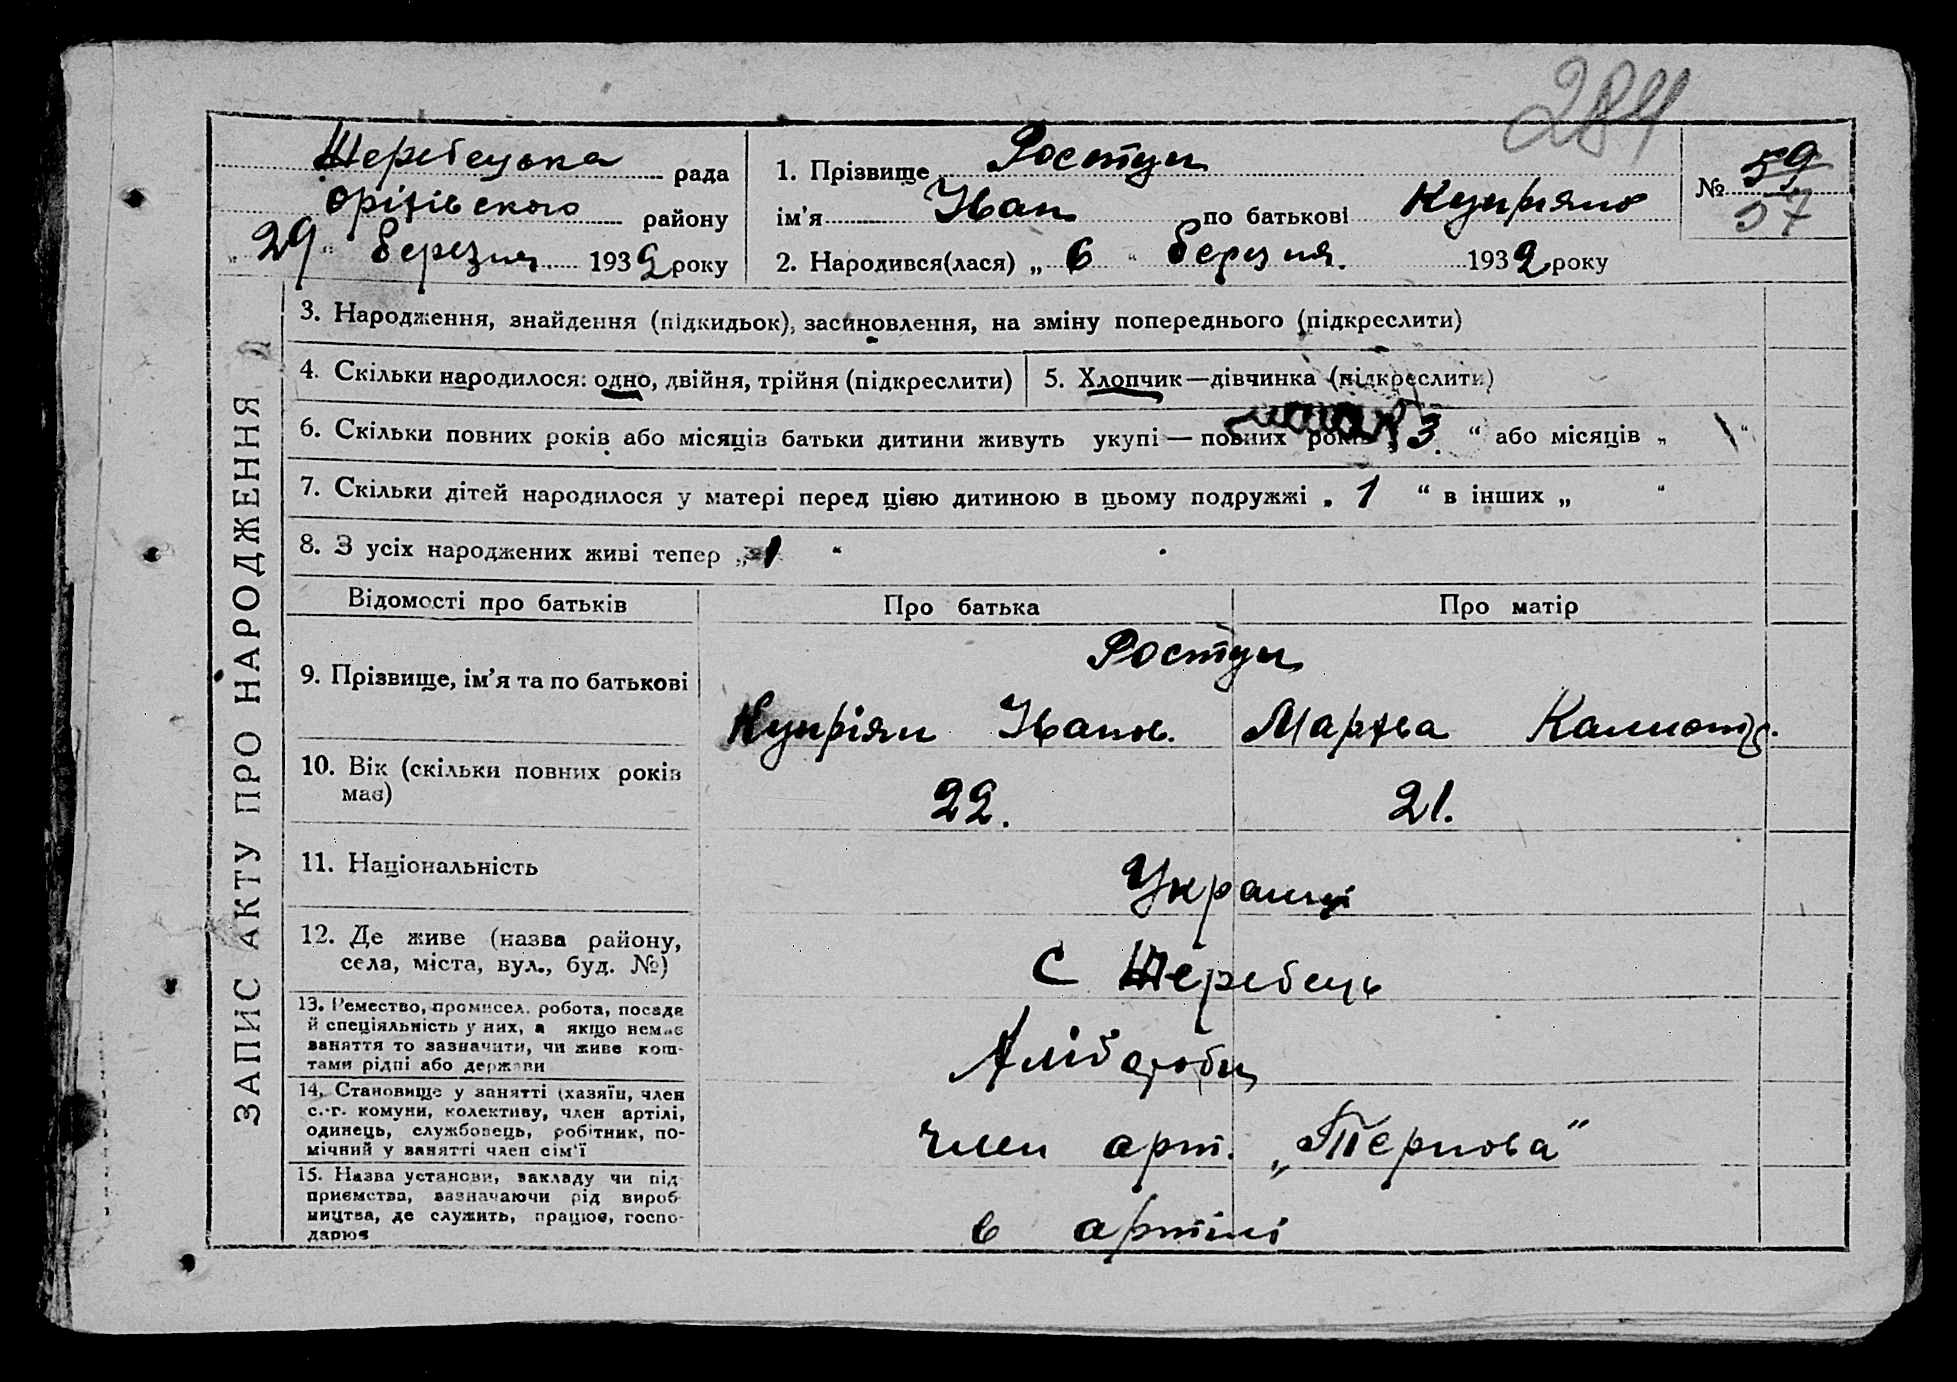 284
Жеребецька рада
Оріхівського району
„29“ березня 1932 року
1. Прізвище Ростун
ім’я Іван по батькові Купріянов
2. Народився(лася) „6“ березня. 1932 року
№ 59
37
ЗАПИС АКТУ ПРО НАРОДЖЕННЯ
3. Народження, знайдення (підкидьок), засиновлення, на зміну попереднього (підкреслити)
4. Скільки народилося: одно, двійня, трійня (підкреслити)
5. Хлопчик—дівчинка (підкреслити)
6. Скільки повних років або місяців батьки дитини живуть укупі — повних років „3.“ або місяців „\“
7. Скільки дітей народилося у матері перед цією дитиною в цьому подружжі „1“ в інших „ “
8. З усіх народжених живі тепер „1“
Відомості про батьків
Про батька
Про матір
9. Прізвище, ім’я та по батькові
Ростун
Купріян Іванов.
Марфа
10. Вік (скільки повних років має)
22.
21.
11. Національність
Українці
12. Де живе (назва району,
села, міста, вул., буд. №)
С Жеребець
13. Ремество, промисел. робота, посада
й спеціяльність у них, а якщо немає
заняття то зазначити, чи живе кош-
тами рідні або держави
Хлібороби
14. Становище у занятті (хазяїн, член
с.-г. комуни, колективу, член артілі,
одинець, службовець, робітник, по-
мічний у занятті член сім’ї
член арт. „Тернова“
15. Назва установи, закладу чи під-
приємства, зазначаючи рід вироб-
ництва, де служить, працює, госпо-
дарює
в артілі